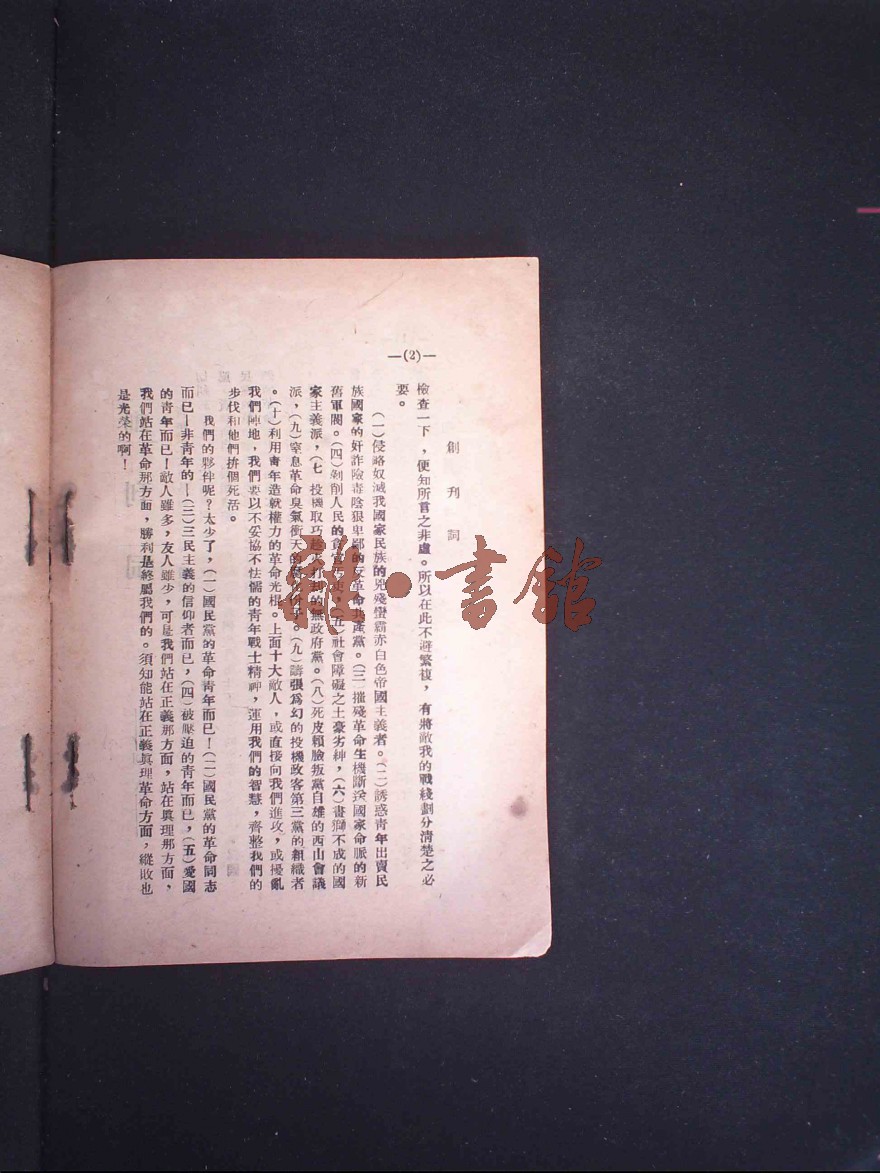 —(2)—
創刊詞
檢查一下，便知所言之非虛。所以在此不避繁複，有將敵我的戰綫劃分清楚之必
要。
(一)侵略奴滅我國家民族的兇殘蠻霸赤白色帝國主義者。(二)誘惑青年出賣民
族國家的奸詐險毒陰狠卑鄙的反革命共產黨。(三)摧殘革命生機斷送國家命脈的新
舊軍閥。(四)剝削人民的貪官污吏，(五)社會障礙之土豪劣紳，(六)畫獅不成的國
家主義派，(七 投機取巧趁火打劫的無政府黨。(八)死皮賴臉叛黨自雄的西山會議
派，(九)窒息革命臭氣衝天的腐化份子。(九)譸張爲幻的投機政客第三黨的組織者
。(十)利用青年造就權力的革命光棍。上面十大敵人，或直接向我們進攻，或擾亂
我們陣地，我們要以不妥協不怯懦的青年戰士精神，運用我們的智慧，齊整我們的
步伐和他們拚個死活。
我們的夥伴呢？太少了，(一)國民黨的革命青年而已！(二)國民黨的革命同志
而已！非青年的！(三)三民主義的信仰者而已，(四)被壓迫的青年而已，(五)愛國
的青年而已！敵人雖多，友人雖少，可是我們站在正義那方面，站在眞理那方面，
我們站在革命那方面，勝利是終屬我們的。須知能站在正義眞理革命方面，縱敗也
是光榮的啊！
雜·書館